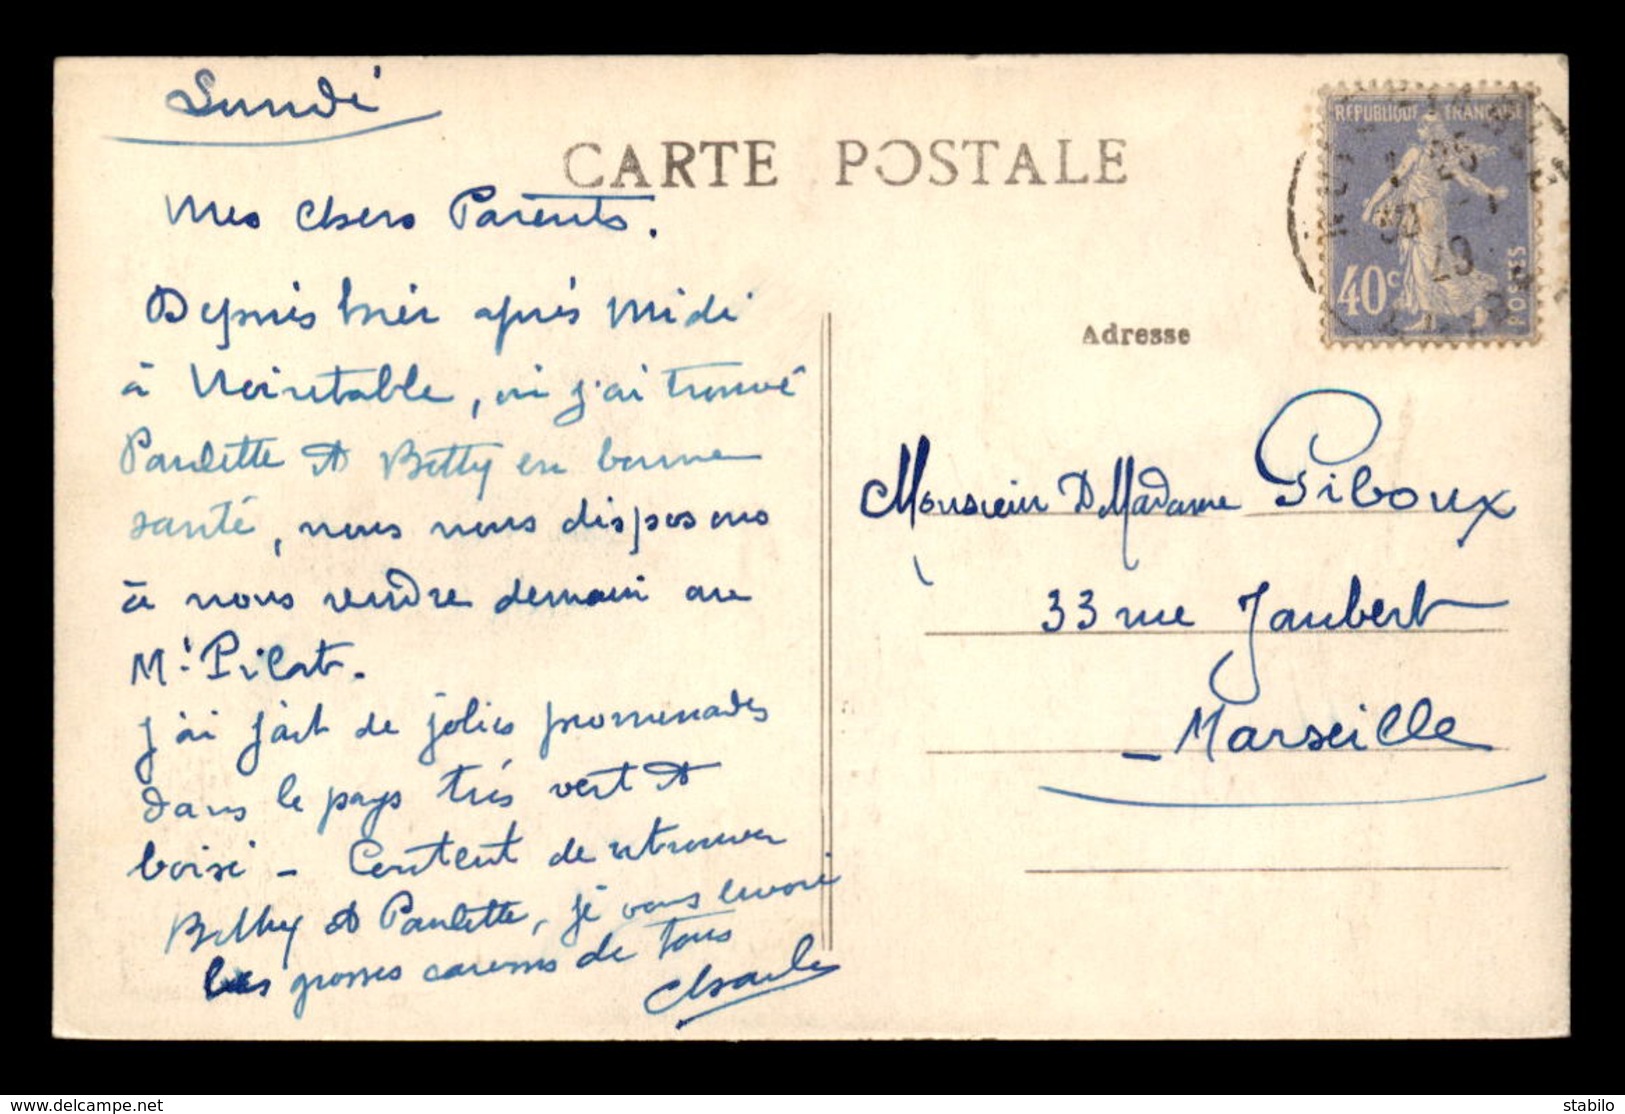 Lundi
CARTE POSTALE
Mes chers Parents.
Depuis hier après midi
à Noirétable, où j'ai trouvé
Paulette et Betty en bonne
santé, nous nous disposons
à nous rendre demain au
Mt Pilat.
J'ai fait de jolies promenades
dans le pays très vert et
boisé - Content de retrouver
Betty et Paulette, je vous envoie
les grosses caresses de tous
Charles
REPUBLIQUE FRANÇAISE
40c
POSTES
29
Adresse
Monsieur et Madame Piboux
33 rue Jaubert
- Marseille
www.delcampe.net
stabilo